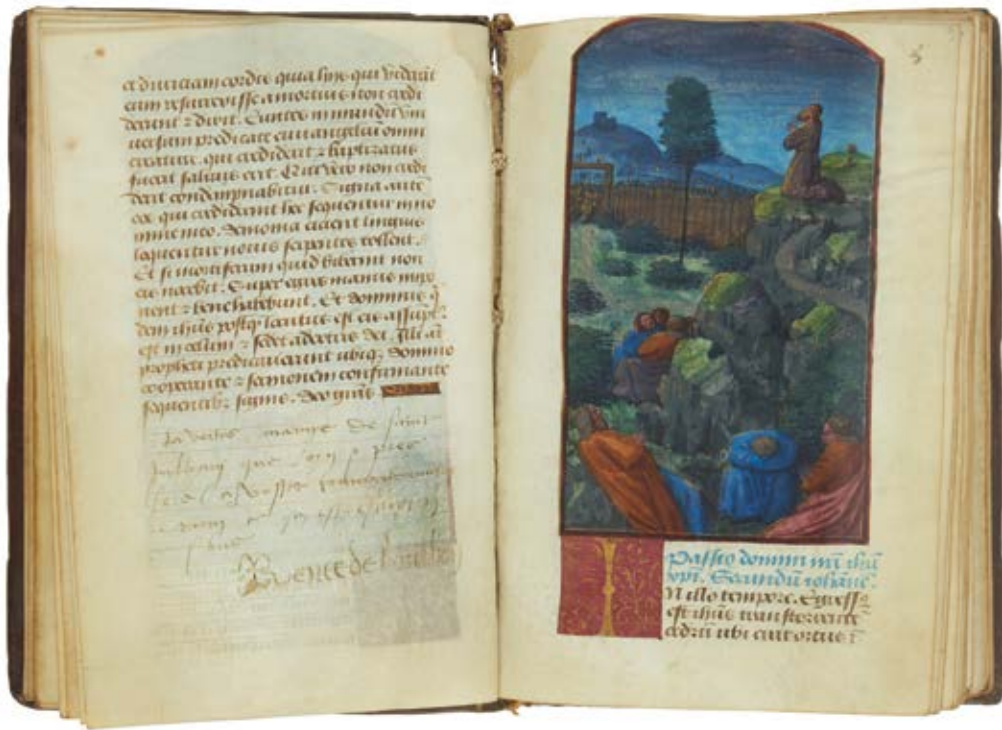 et duriciam cordis quia hiis qui viderāt
eum resurrexisse a mortuis non credi
derunt ⁊ dixit. Euntes in mundū vni
uersum predicate euuangeliū omni
creature. qui crediderit ⁊ baptizatus
fuerit saluus erit. Qui vero non credi
derit condempnabitur. Signa autē
eos qui crediderint hec sequentur in no
mine meo. demonia eicient linguis
loquentur nouis serpentes tollent.
Et si mortiferum quid biberint non
eis nocebit. Super egros manus impo
nent ⁊ bene habebunt. Et dominus q̄
dem ihūs postq̄ locutus est eis assūpt
est in celum ⁊ sedet a dextris dei. Illi aūt
propheti predicauerunt ubiq; domino
cooperante ⁊ sermonem confirmante
sequentib; signis. deo gr̄as
de saint
que
Passio domini nr̄i ihū
xp̄i. Secundū iohānē.
IN illo tempore. Egress⁹
est ihūs trans torrente
cedrō ubi erat ortus ī